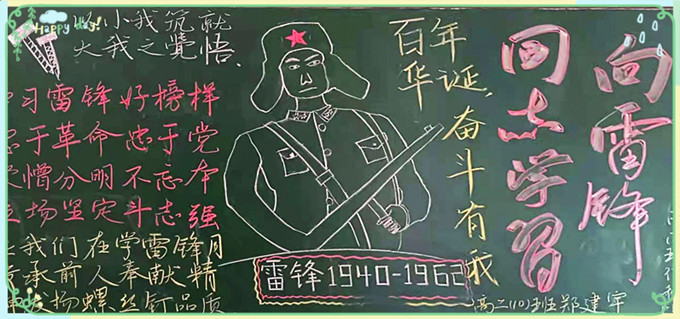 Happy day!
小我筑就
大我之覺悟、
习雷锋好榜样
于革命忠于党
憎分明不忘本
场坚定斗志强
我们在学雷锋月
承前人奉献精
发扬螺丝钉品质
百年
华诞,
奋斗有我
雷锋1940-1962
向雷锋
同志学习
高二(10)班郑建宇